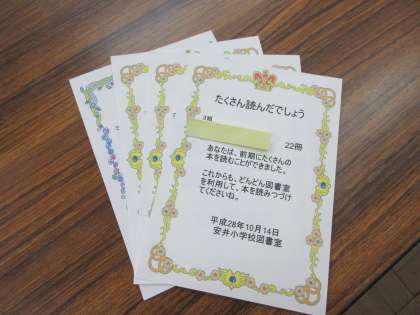 たくさん読んだでしょう
22冊
あなたは、前期にたくさんの
本を読むことができました。
これからも、どんどん図書室
を利用して、本を読みつづけ
てくださいね。
平成28年10月14日
安井小学校図書室